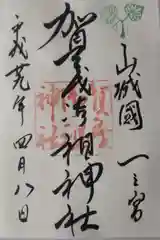 山城國一之宮
賀茂御祖神社
平成廿九年四月八日